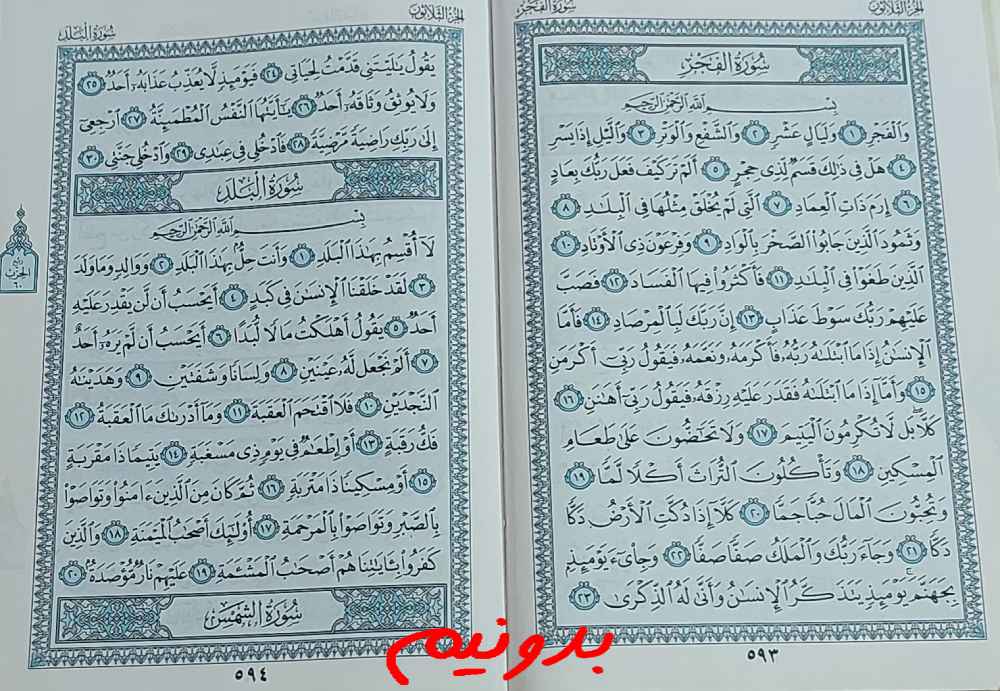 سُورَةُ الفَجْرِ
الجُزءُ الثَّلَاثُونَ
سُورَةُ الفَجْرِ
بِسْمِ اللَّهِ الرَّحْمَٰنِ الرَّحِيمِ
وَالْفَجْرِ ١ وَلَيَالٍ عَشْرٍ ٢ وَالشَّفْعِ وَالْوَتْرِ ٣ وَاللَّيْلِ إِذَا يَسْرِ
٤ هَلْ فِي ذَٰلِكَ قَسَمٌ لِّذِي حِجْرٍ ٥ أَلَمْ تَرَ كَيْفَ فَعَلَ رَبُّكَ بِعَادٍ
٦ إِرَمَ ذَاتِ الْعِمَادِ ٧ الَّتِي لَمْ يُخْلَقْ مِثْلُهَا فِي الْبِلَادِ ٨
وَثَمُودَ الَّذِينَ جَابُوا الصَّخْرَ بِالْوَادِ ٩ وَفِرْعَوْنَ ذِي الْأَوْتَادِ ١٠
الَّذِينَ طَغَوْا فِي الْبِلَادِ ١١ فَأَكْثَرُوا فِيهَا الْفَسَادَ ١٢ فَصَبَّ
عَلَيْهِمْ رَبُّكَ سَوْطَ عَذَابٍ ١٣ إِنَّ رَبَّكَ لَبِالْمِرْصَادِ ١٤ فَأَمَّا
الْإِنسَٰنُ إِذَا مَا ابْتَلَىٰهُ رَبُّهُ فَأَكْرَمَهُ وَنَعَّمَهُ فَيَقُولُ رَبِّي أَكْرَمَنِ
١٥ وَأَمَّا إِذَا مَا ابْتَلَىٰهُ فَقَدَرَ عَلَيْهِ رِزْقَهُ فَيَقُولُ رَبِّي أَهَٰنَنِ ١٦
كَلَّا بَل لَّا تُكْرِمُونَ الْيَتِيمَ ١٧ وَلَا تَحَٰضُّونَ عَلَىٰ طَعَامِ
الْمِسْكِينِ ١٨ وَتَأْكُلُونَ التُّرَاثَ أَكْلًا لَّمًّا ١٩
وَتُحِبُّونَ الْمَالَ حُبًّا جَمًّا ٢٠ كَلَّا إِذَا دُكَّتِ الْأَرْضُ دَكًّا
دَكًّا ٢١ وَجَاءَ رَبُّكَ وَالْمَلَكُ صَفًّا صَفًّا ٢٢ وَجِايءَ يَوْمَئِذٍ
بِجَهَنَّمَ يَوْمَئِذٍ يَتَذَكَّرُ الْإِنسَٰنُ وَأَنَّىٰ لَهُ الذِّكْرَىٰ ٢٣
٥٩٣
الجُزءُ الثَّلَاثُونَ
سُورَةُ البَلَدِ
يَقُولُ يَٰلَيْتَنِي قَدَّمْتُ لِحَيَاتِي ٢٤ فَيَوْمَئِذٍ لَّا يُعَذِّبُ عَذَابَهُ أَحَدٌ ٢٥
وَلَا يُوثِقُ وَثَاقَهُ أَحَدٌ ٢٦ يَٰأَيَّتُهَا النَّفْسُ الْمُطْمَئِنَّةُ ٢٧ ارْجِعِي
إِلَىٰ رَبِّكِ رَاضِيَةً مَّرْضِيَّةً ٢٨ فَادْخُلِي فِي عِبَٰدِي ٢٩ وَادْخُلِي جَنَّتِي ٣٠
سُورَةُ البَلَدِ
بِسْمِ اللَّهِ الرَّحْمَٰنِ الرَّحِيمِ
لَا أُقْسِمُ بِهَٰذَا الْبَلَدِ ١ وَأَنتَ حِلٌّ بِهَٰذَا الْبَلَدِ ٢ وَوَالِدٍ وَمَا وَلَدَ
٣ لَقَدْ خَلَقْنَا الْإِنسَٰنَ فِي كَبَدٍ ٤ أَيَحْسَبُ أَن لَّن يَقْدِرَ عَلَيْهِ
أَحَدٌ ٥ يَقُولُ أَهْلَكْتُ مَالًا لُّبَدًا ٦ أَيَحْسَبُ أَن لَّمْ يَرَهُ أَحَدٌ
٧ أَلَمْ نَجْعَل لَّهُ عَيْنَيْنِ ٨ وَلِسَانًا وَشَفَتَيْنِ ٩ وَهَدَيْنَٰهُ
النَّجْدَيْنِ ١٠ فَلَا اقْتَحَمَ الْعَقَبَةَ ١١ وَمَا أَدْرَىٰكَ مَا الْعَقَبَةُ ١٢
فَكُّ رَقَبَةٍ ١٣ أَوْ إِطْعَٰمٌ فِي يَوْمٍ ذِي مَسْغَبَةٍ ١٤ يَتِيمًا ذَا مَقْرَبَةٍ
١٥ أَوْ مِسْكِينًا ذَا مَتْرَبَةٍ ١٦ ثُمَّ كَانَ مِنَ الَّذِينَ ءَامَنُوا وَتَوَاصَوْا
بِالصَّبْرِ وَتَوَاصَوْا بِالْمَرْحَمَةِ ١٧ أُولَٰئِكَ أَصْحَٰبُ الْمَيْمَنَةِ ١٨ وَالَّذِينَ
كَفَرُوا بِـَٔايَٰتِنَا هُمْ أَصْحَٰبُ الْمَشْـَٔمَةِ ١٩ عَلَيْهِمْ نَارٌ مُّؤْصَدَةٌ ٢٠
سُورَةُ الشَّمْسِ
٥٩٤
الحزب
٦٠
بدونیم